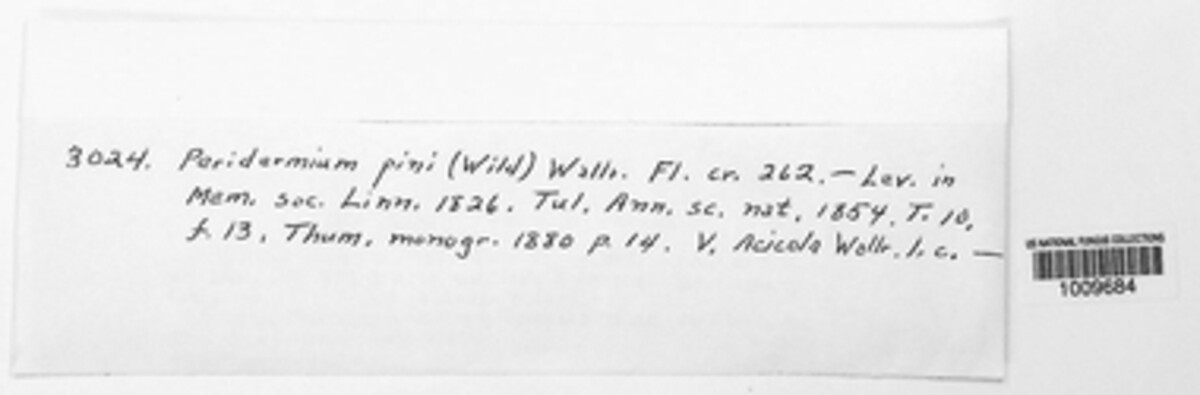 3024. Peridermium pini (Wild) Wallr. Fl. cr. 262. — Lev. in
Mem. soc. Linn. 1826. Tul. Ann. sc. nat. 1854. T. 10,
f. 13. Thum. monogr. 1880 p. 14. V. Acicola Wallr. l. c. —
US NATIONAL FUNGUS COLLECTIONS
1009684